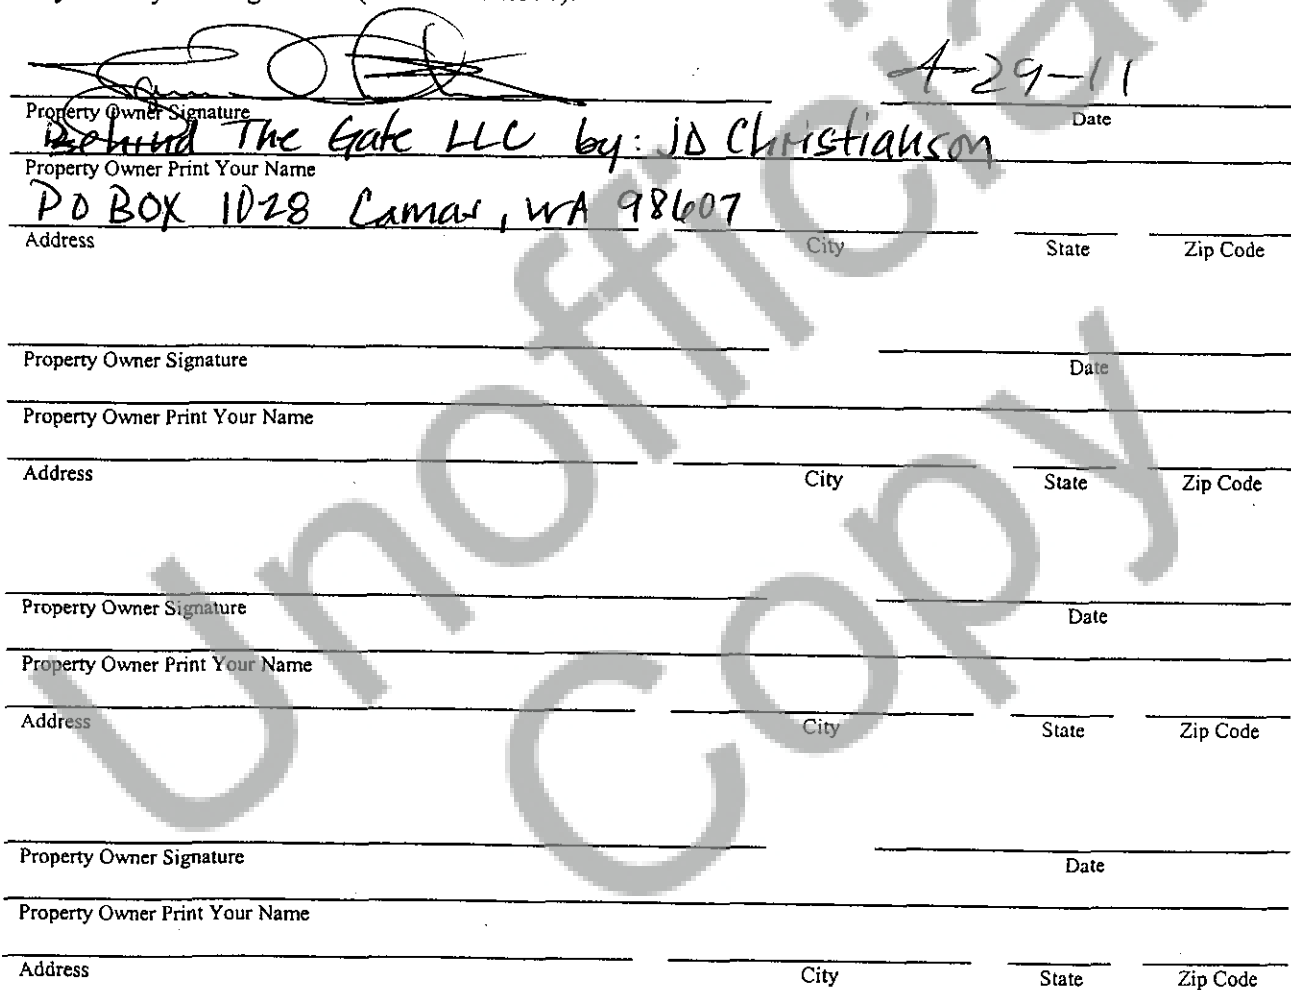 4-29-11
Property Owner Signature Date
Behind The Gate LLC by: JD Christianson
Property Owner Print Your Name
PO BOX 1028 Camas, WA 98607
Address City State Zip Code
Property Owner Signature Date
Property Owner Print Your Name
Address City State Zip Code
Property Owner Signature Date
Property Owner Print Your Name
Address City State Zip Code
Property Owner Signature Date
Property Owner Print Your Name
Address City State Zip Code
Unofficial
Copy